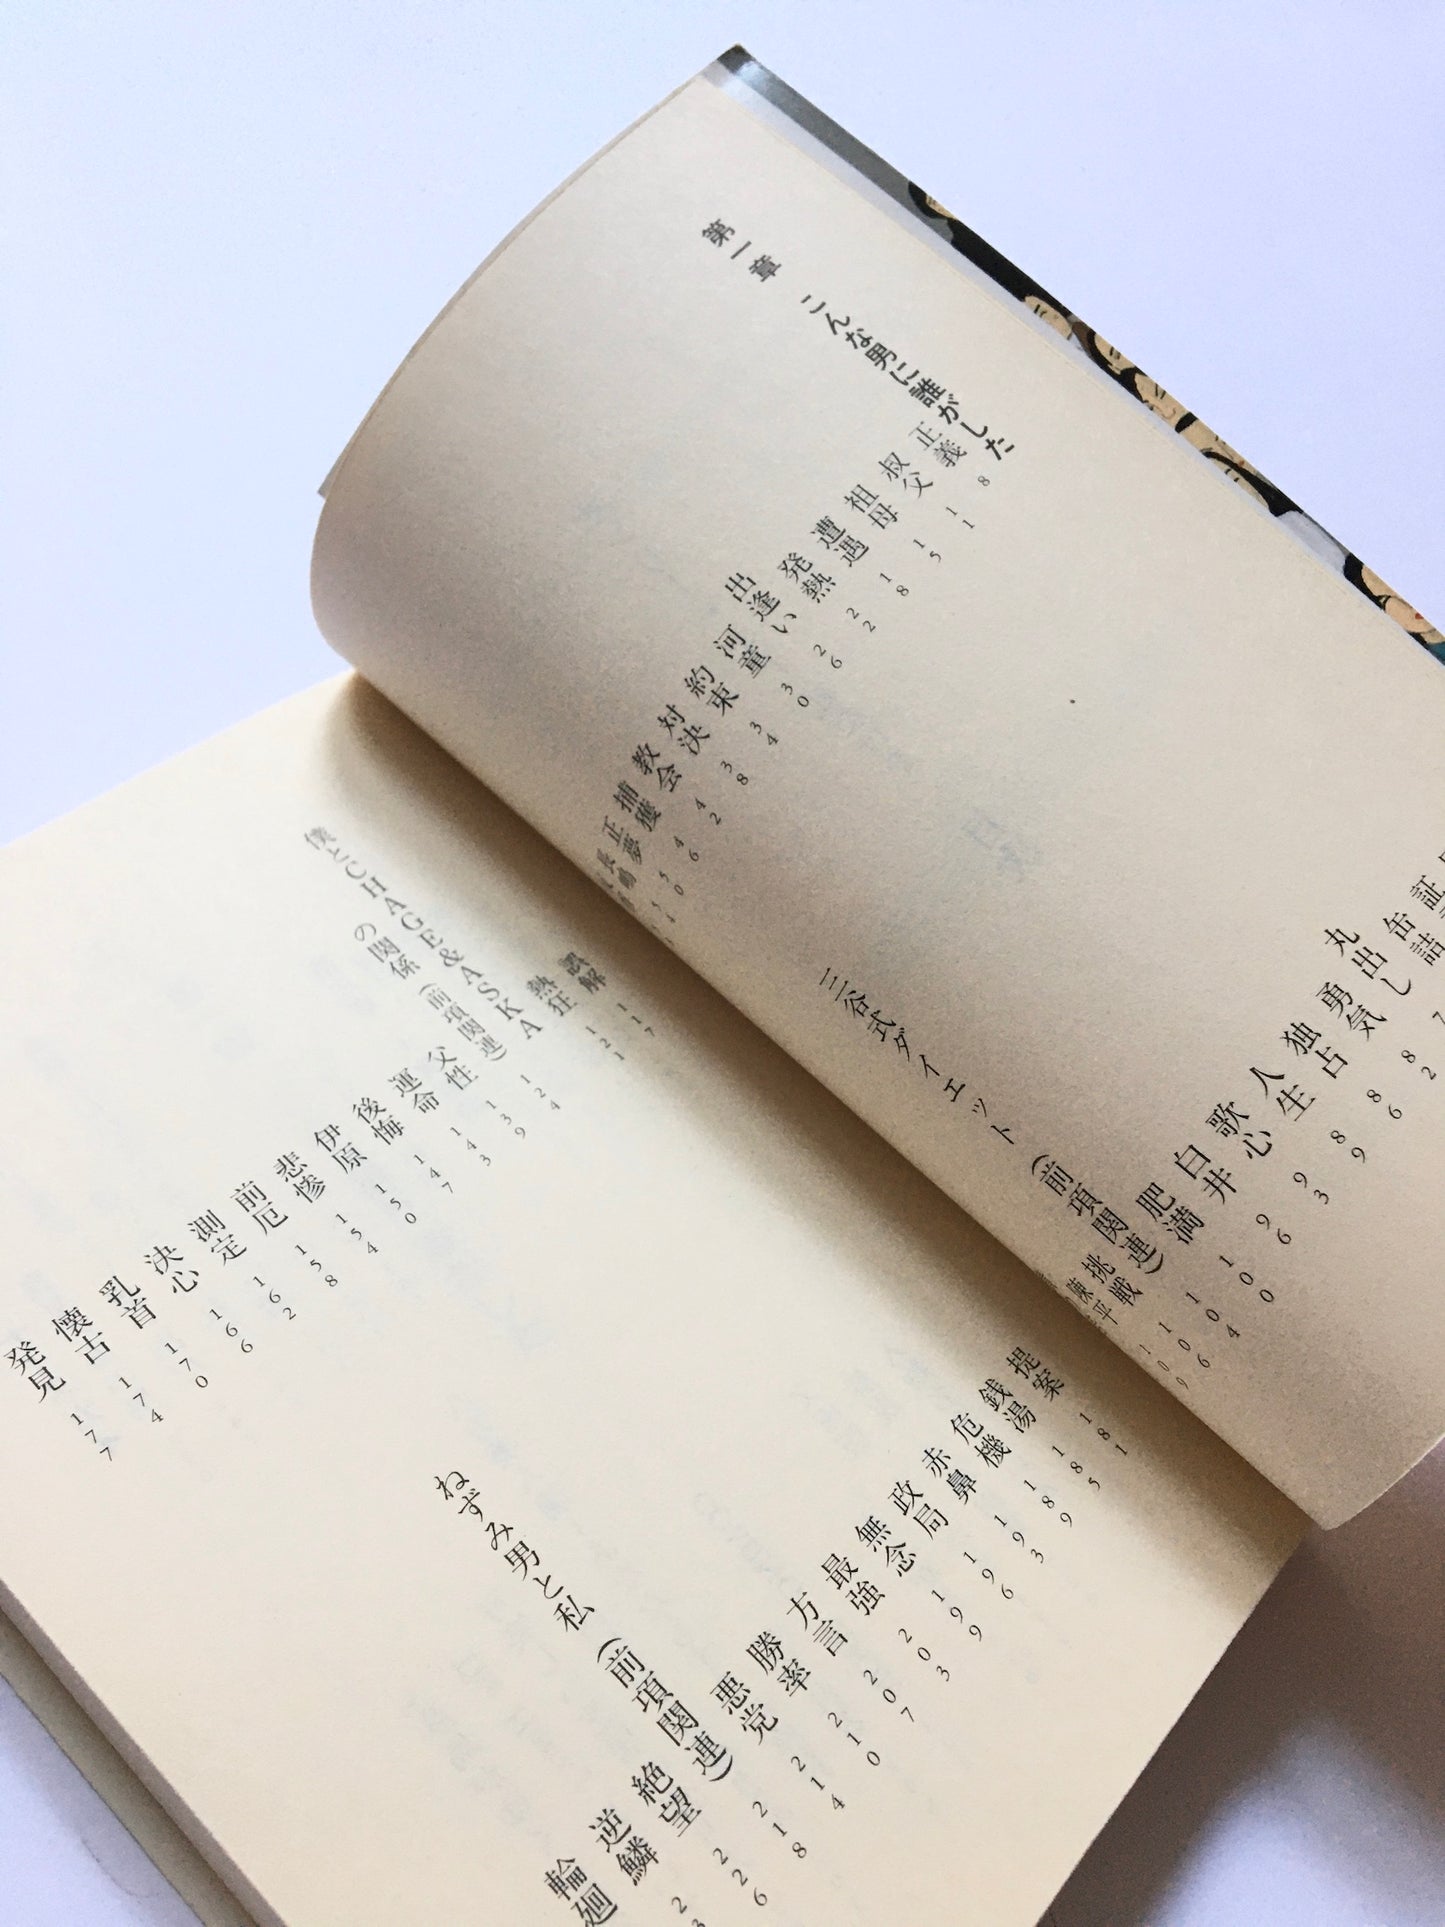 第一章 こんな男に誰がした
正義 8
叔父 11
祖母 15
遭遇 18
発熱 22
出逢い 26
河童 30
約束 34
対決 38
教会 42
捕獲 46
正夢 50
長嶋 54
証
缶詰 7
丸出し 82
勇気 86
独占 89
人生 93
歌心 96
白井 100
肥満 104
三谷式ダイエット（前項関連） 106
挑戦 109
陳平
誤解 117
熱狂 121
僕とCHAGE&ASKA
の関係（前項関連） 124
父性 139
運命 143
後悔 147
伊原 150
悲惨 154
前厄 158
測定 162
決心 166
乳首 170
懐古 174
発見 177
提案 181
銭湯 185
危機 189
赤鼻 193
政局 196
無念 199
最強 203
方言 207
勝率 210
悪党 214
ねずみ男と私（前項関連） 218
絶望 226
逆鱗 23
輪廻